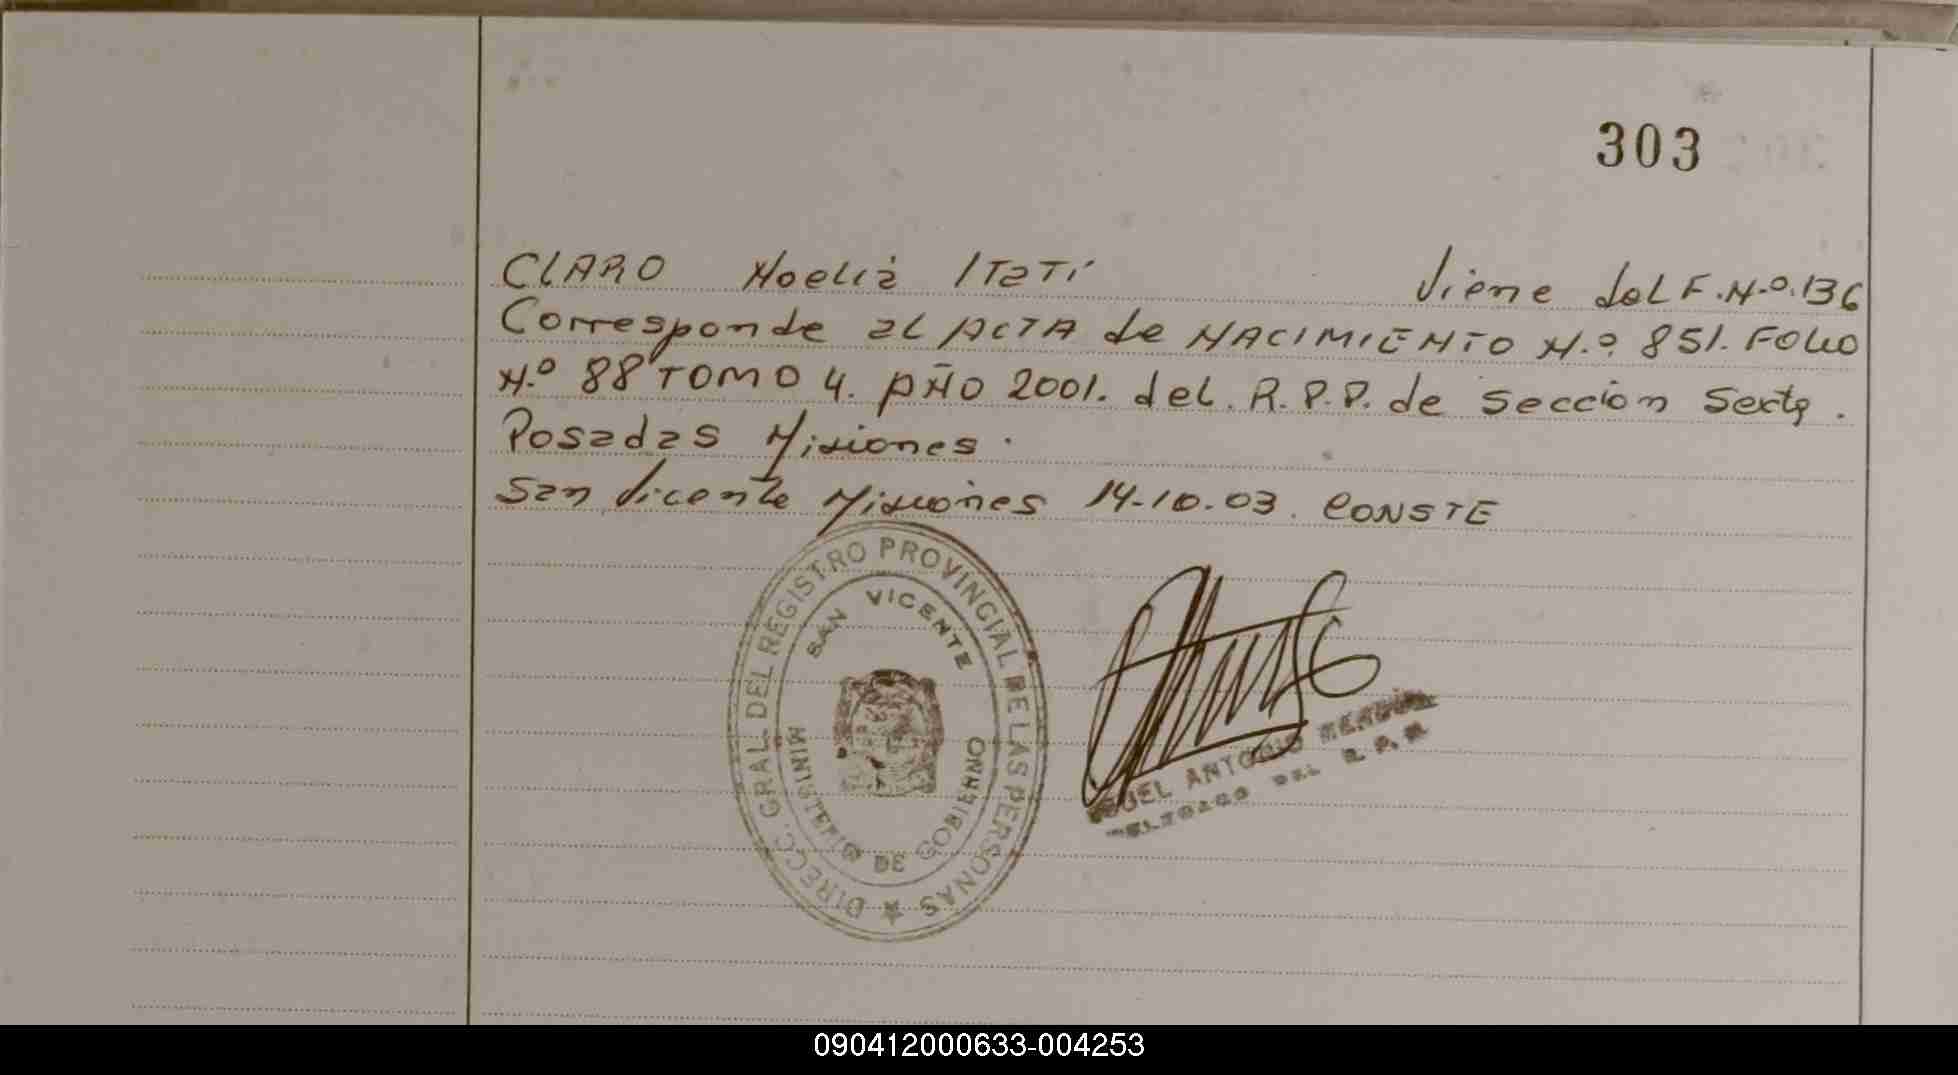 303
CLARO Noelia Itatí Viene del F. N.º 136
Corresponde al ACTA de NACIMIENTO N.º 851. FOLIO
N.º 88 TOMO 4. AÑO 2001. del. R.P.P. de Sección Sexta.
Posadas Misiones.
San Vicente Misiones 14-10.03. CONSTE
DIRECC. GRAL. DEL REGISTRO PROVINCIAL DE LAS PERSONAS
SAN VICENTE
MINISTERIO DE GOBIERNO
ANTONIO
DEL R. P. P.
090412000633-004253